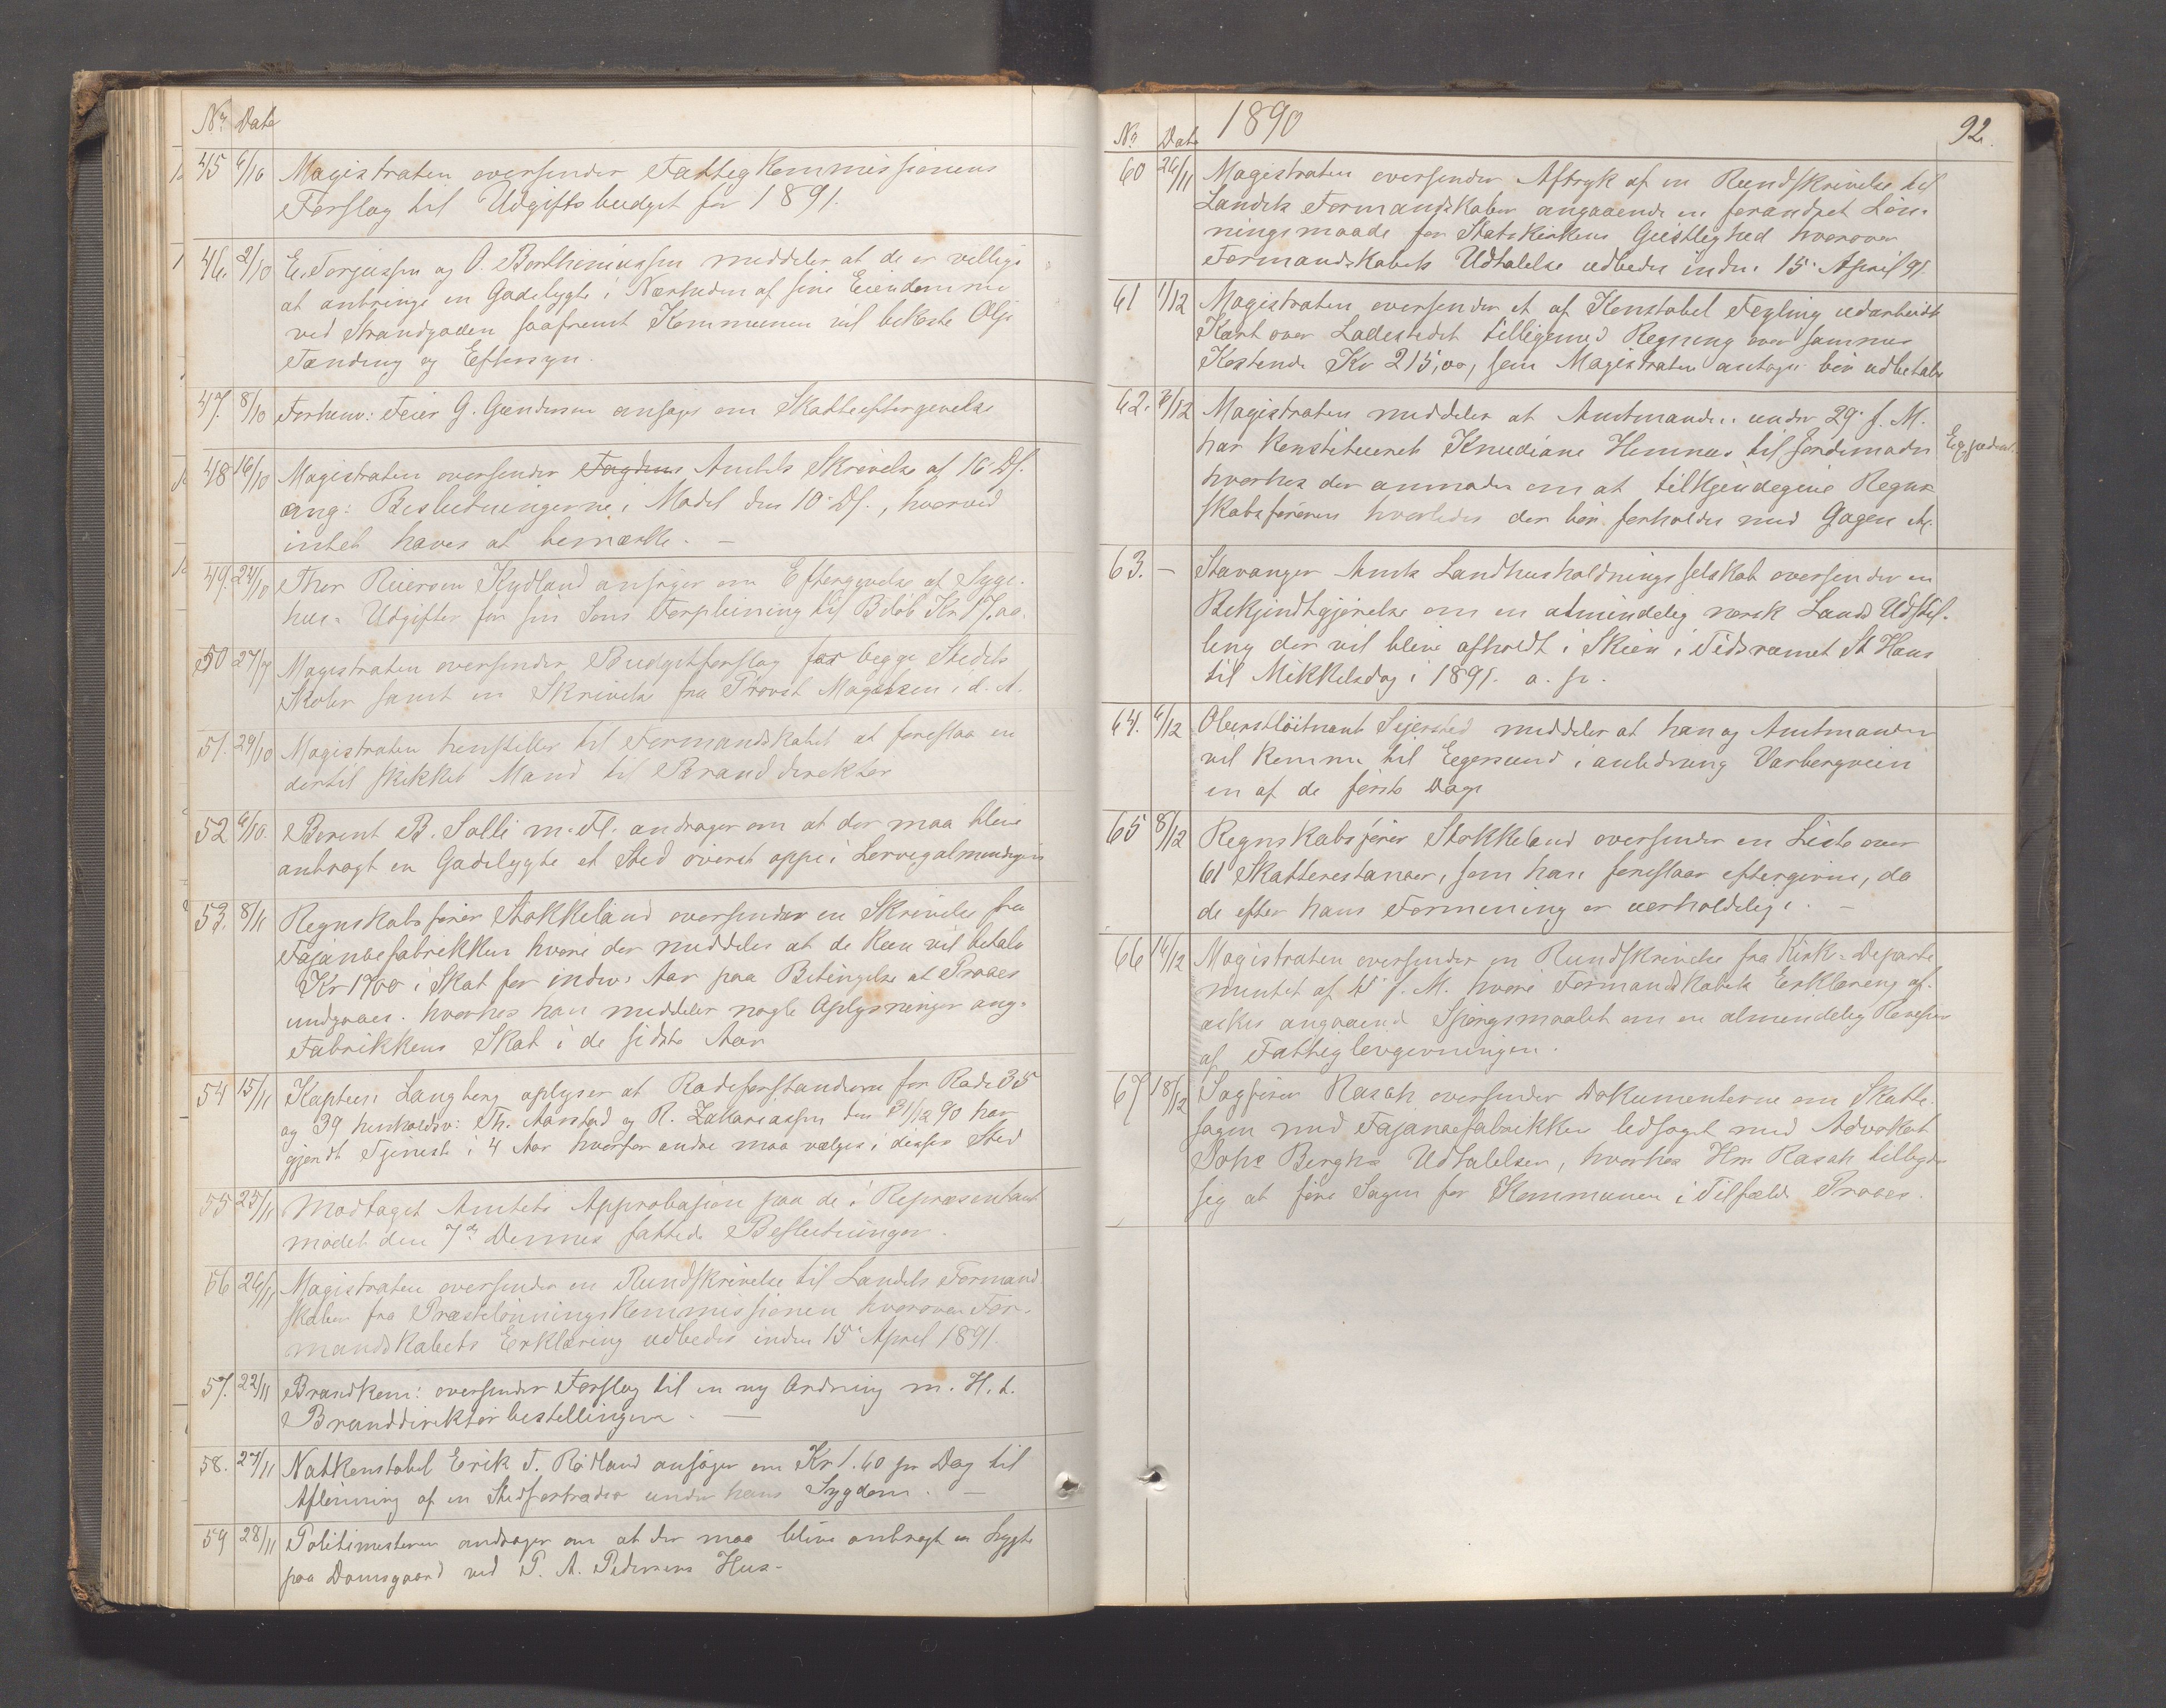 No. Date
45 6/10 Magistraten oversender Fattigkommissionens
Forslag til Udgiftsbudget for 1891.
46. 2/10 E. Torjussen og O. Berthiniussen meddeler at de er villige
at anbringe en Gadelygte i Nærheden af sine Eiendomme
ved Strandgaden saafremt Kommunen vil bekoste Olje
Tænding og Eftersyn.
47. 8/10 Forhenv: Feier G. Gundersen ansøger om Skatteeftergivelse
48 16/10 Magistraten oversender Amtets Skrivelse af 16 Ds.
ang: Beslutningerne i Mødet den 10 Ds., hvorved
intet haves at bemærke. —
49. 24/10 Thor Reiersen Kydland ansøger om Eftergivelse af Syge-
hus- Udgifter for sin Søns Forpleining til Beløb Kr 17,00.
50 27/9 Magistraten oversender Budgetforslag for begge Stedets
Skoler samt en Skrivelse fra Provst Magelsen i d. A.
51. 29/10 Magistraten henstiller til Formandskabet at foreslaa en
dertil skikket Mand til Branddirektør
52 6/10. Berent B. Salli m. Fl. andrager om at der maa blive
anbragt en Gadelygte et Sted øverst oppe i Lervigalmendingen
53. 8/11 Regnskabsfører Stokkeland oversender en Skrivelse fra
Fajancefabrikken hvori der meddeles at de kun vil betale
Kr 1700 i Skat for indev. Aar paa Betingelse at Proces
undgaaes. hvorhos han meddeler nogle Oplysninger ang.
Fabrikkens Skat i de sidste Aar
54 15/11 Kaptein Langberg oplyser at Rodeforstanderne for Rode 35
og 39 henholdsv: Th. Aarstad og R. Zakariassen den 31/12 90 har
gjendt Tjeneste i 4 Aar hvorfor andre maa vælges i disses Sted
55 25/11 Modtaget Amtets Approbasion paa de i Repræsentant
mødet den 7de Dennes fattede Beslutninger.
56 26/11 Magistraten oversender en Rundskrivelse til Landets Formand
skaber fra Præstelønningskommissionen hvorover For-
mandskabets Erklæring udbedes inden 15. April 1891.
57. 22/11 Brandkom: oversender Forslag til en ny Ordning m. H. t.
Branddirektørbestillingen. —
58. 27/11 Natkonstabel Erik T. Rødland ansøger om Kr 1.60 pr Dag til
Aflønning af en Stedfortræder under hans Sygdom. —
59 28/11 Politimesteren andrager om at der maa blive anbragt en Lygte
paa Damsgaard ved P. A. Pedersens Hus-
1890
92.
No. Date
60 26/11 Magistraten oversender Aftryk af en Rundskrivelse til
Landets Formandskaber angaaende en forandret Løn-
ningsmaade for Statskirkens Geistlighed hvorover
Formandskabets Udtalelse udbedes inden 15. April 91.
61 1/12 Magistraten oversender et af Konstabel Tegling udarbeidt
Kart over Ladestedet tilligemed Regning over samme
Kostende Kr 215,00, som Magistraten antager bør udbetales
62. 3/12 Magistraten meddeler at Amtmanden under 29. f. M.
har konstitueret Knudiane Hemnes til Jordemoder
hvorhos der anmodes om at tilkjendegive Regn-
skabsføreren hvorledes der bør forholdes med Gagen &c.
63. — Stavanger Amts Landhusholdningsselskab oversender en
Bekjendtgjørelse om en almindelig norsk Lands Udstil-
ling der vil blive afholdt i Skien i Tidsrummet St Hans
til Mikkelsdag i 1891.
64. 6/12 Oberstløitnant Sejersted meddeler at han og Amtmanden
vil komme til Egersund i anledning Varbergveien
en af de første Dage
65 8/12 Regnskabsfører Stokkeland oversender en Liste over
61 Skatterestancer, som han foreslaar eftergivne, da
de efter hans Formening er uerholdelige. —
66 16/12 Magistraten oversender en Rundskrivelse fra Kirk-Departe
mentet af f. M. hvori Formandskabets Erklæring af-
æskes angaaend Spørgsmaalet om en almindelig Revision
af Fattiglovgivningen.
67 18/12 Sagfører Rasch oversender Dokumenterne om Skatte-
sagen med Fajancefabrikken ledsaget med Advokat
Johs Berghs Udtalelser, hvorhos Hrr Rasch tilbyder
sig at føre Sagen for Kommunen i Tilfælde Proces.